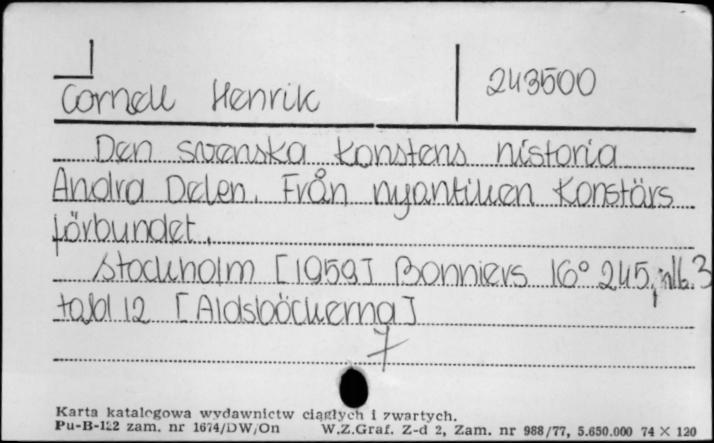 Cornell Henrik 243500
Den svenska konstens historia
Andra Delen. Från nyantiken Konstärs
förbundet.
Stockholm [1959] Bonniers 16° 245, nlb. 3
tabl 12 [Aldsböckerna]
7
Karta katalogowa wydawnictw ciągłych i zwartych.
Pu-B-122 zam. nr 1674/DW/On W.Z.Graf. Z-d 2, Zam. nr 988/77, 5.650.000 74 × 120